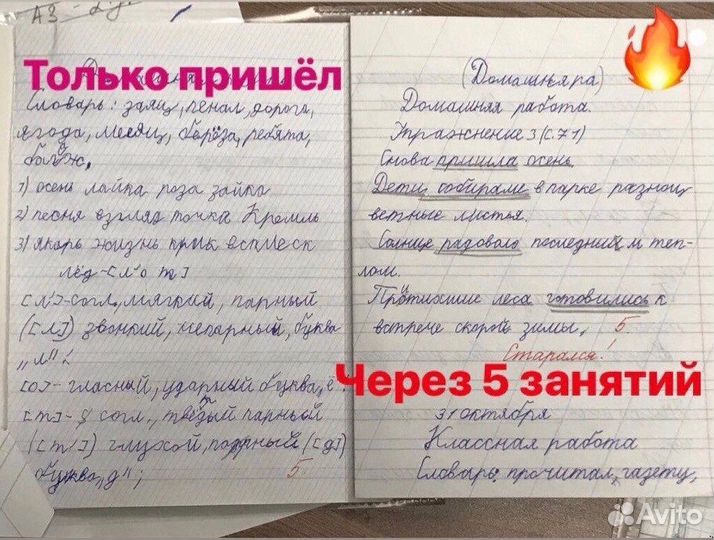 АЗ -
Только пришёл
Словарь: заяц, пенал, дорога,
ягода, месяц, берёза, ребята,
1) осень лайка роза зайка
2) песня взгляд точка Кремль
3) якорь жизнь крик всплеск
лёд-[л'о т]
[л']-согл., мягкий, парный
([л]) звонкий, непарный, буква
"л";
[о]- гласный, ударный буква "ё".
[т]- согл., твёрдый парный
([т']) глухой, парный ([д])
буква "д";
5
(Домашняра)
Домашняя работа.
Упражнение 3 (с.71)
Снова пришла осень.
Дети собирали в парке разноц
ветные листья.
Солнце радовало последним теп-
лом.
Притихшие леса готовились к
встрече скорой зимы. 5
Старался!
Через 5 занятий
31 октября
Классная работа
Словарь: прочитал, газету,
Avito